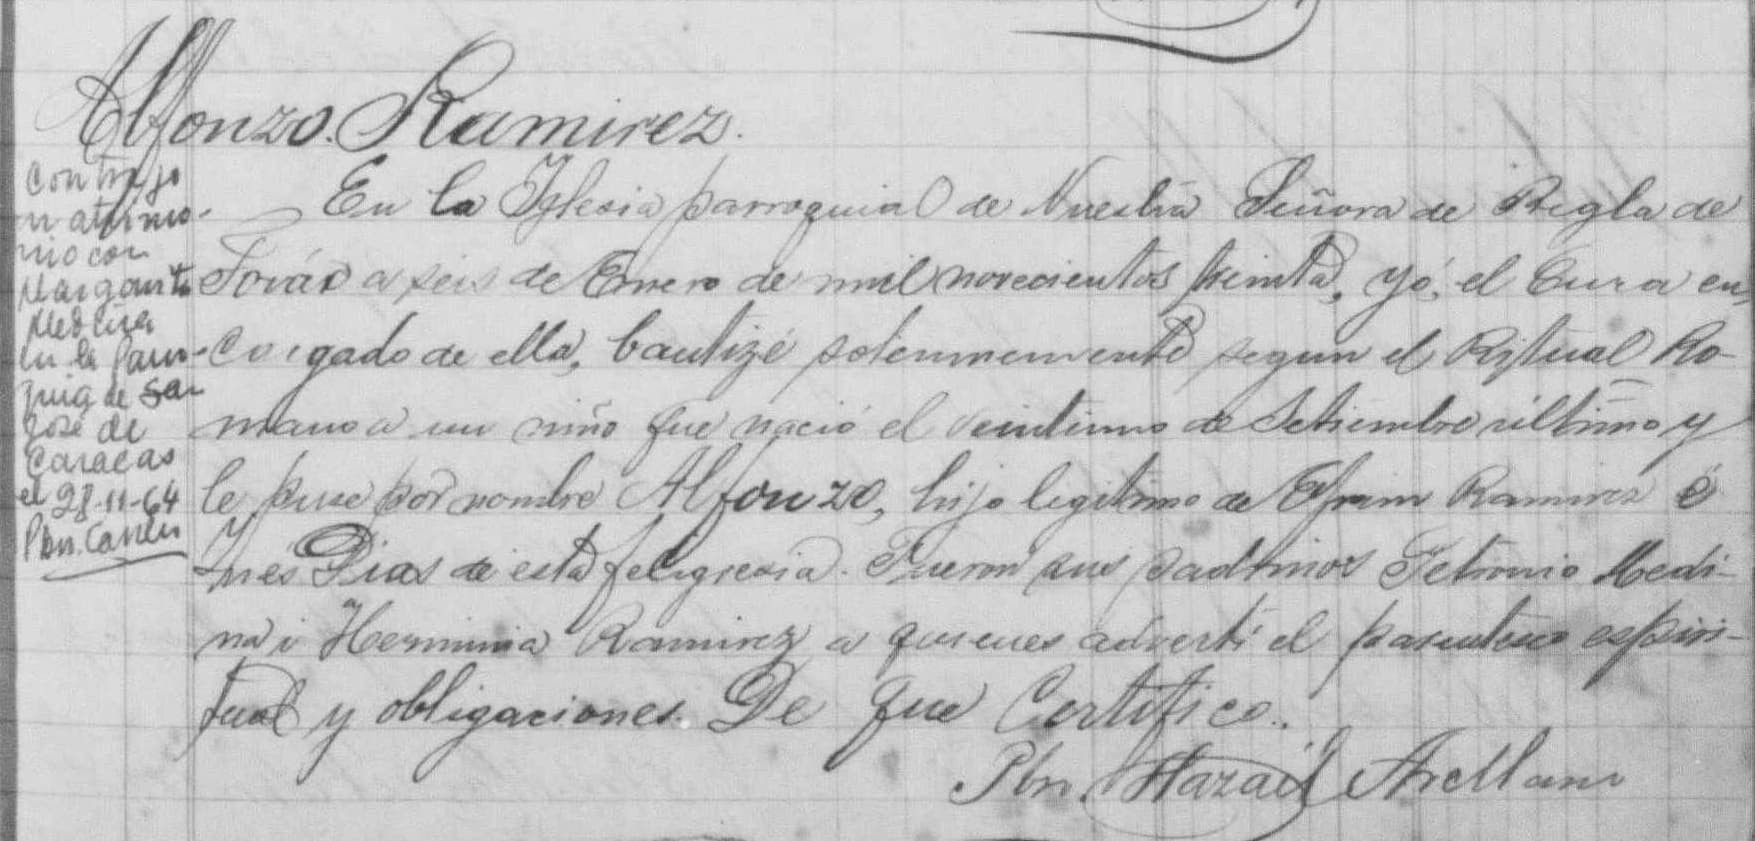 Alfonzo. Ramirez.
Contrajo
matrimo-
nio con
Margarita
Medina
en la Parro-
quia de San
José de
Caracas
el 28-11-64
Pbro.
En la Iglesia parroquial de Nuestra Señora de Regla de
Továr a seis de Enero de mil novecientos treinta, yó, el Cura en-
cargado de ella, bautizé solemnemente segun el Ritual Ro-
mano a un niño que nació el veintiuno de Setiembre último y
le puse por nombre Alfonzo, hijo legitimo de Efrain Ramirez é
Inés Dias de esta feligresia. Fueron sus padrinos Petronio Medi-
na i Herminia Ramirez a quienes advertí el parentesco espiri-
tual y obligaciones. De que Certifico.
Pbro. Hazaél Arellano